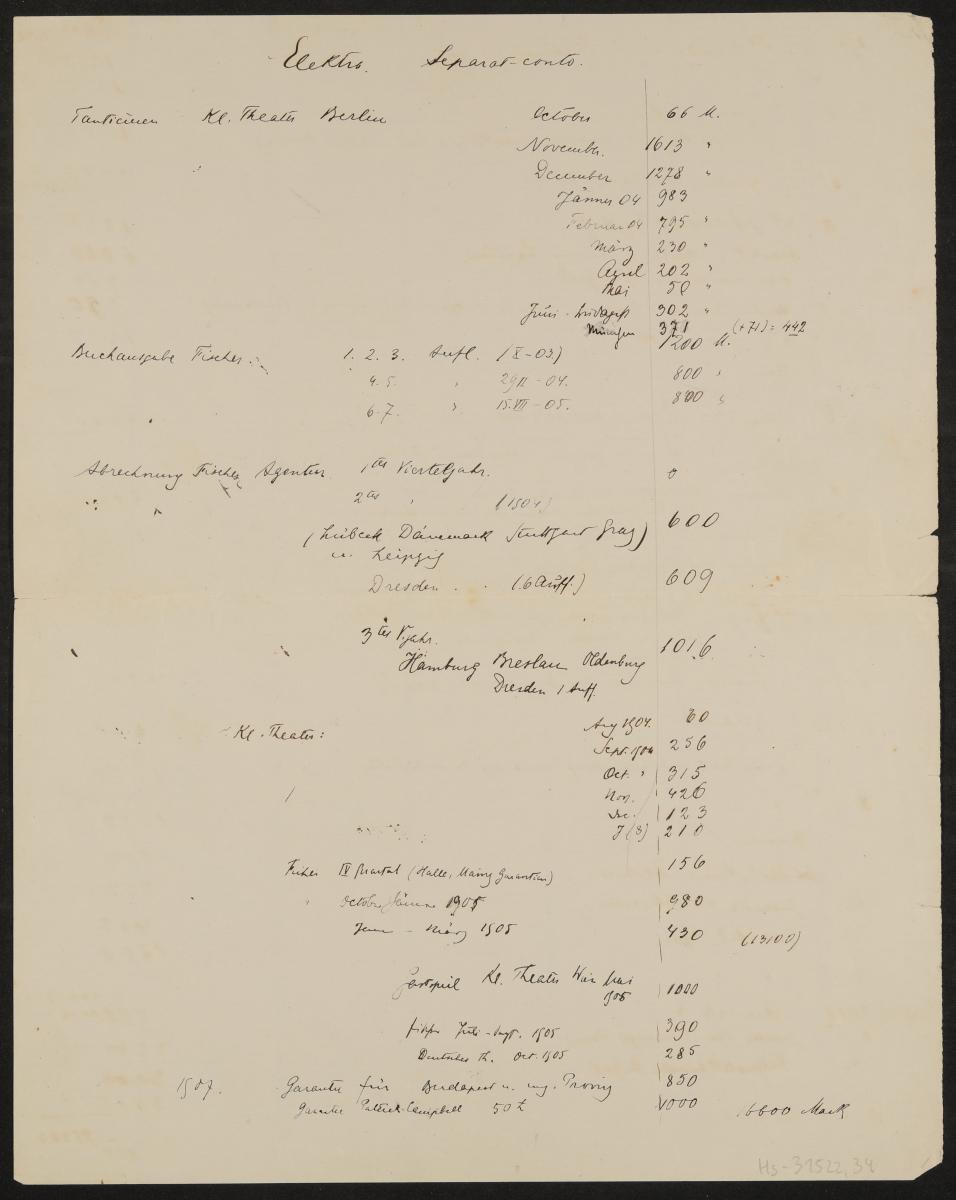 Elektra. Separat-conto.
Tantièmen Kl. Theater Berlin October 66 M.
November. 1613 "
December 1278 "
Jänner 04 983
Februar 04 795 "
März 230 "
April 202 "
Mai 50 "
Juni - 302 "
München 371 (+71) = 442
Buchausgabe Fischer: 1. 2. 3. Aufl. (X-03.) 1200 M.
4. 5. " 29 II - 04. 800 "
6-7. " 15. VII - 05. 800 "
Abrechnung Fischer Agentur 1ter Vierteljahr. 0
2ter " (1904)
(Lübeck Dänemark Stuttgart Graz) 600
u. Leipzig
Dresden . . (6 Auff.) 609
3ter V.jahr. 1016
Hamburg Breslau Oldenburg
Dresden 1 Auff.
Kl. Theater: Aug 1904. 60
Sept. 1904 256
Oct. " 315
Nov. 426
Dec. 123
J (8) 210
Fischer IV Quartal (Halle, Mainz Garantien) 156
" October Jänner 1905 980
Jänn - März 1905 430 (13100)
Gastspiel Kl. Theater Wien Mai 1000
1905
Fischer Juli - Sept. 1905 390
Deutsches Th. Oct. 1905 285
1907. Garantie für Budapest u. ung. Provinz 850
Garantie Patrick Campbell 50 £ 1000 16600 Mark
Hs-31522,34